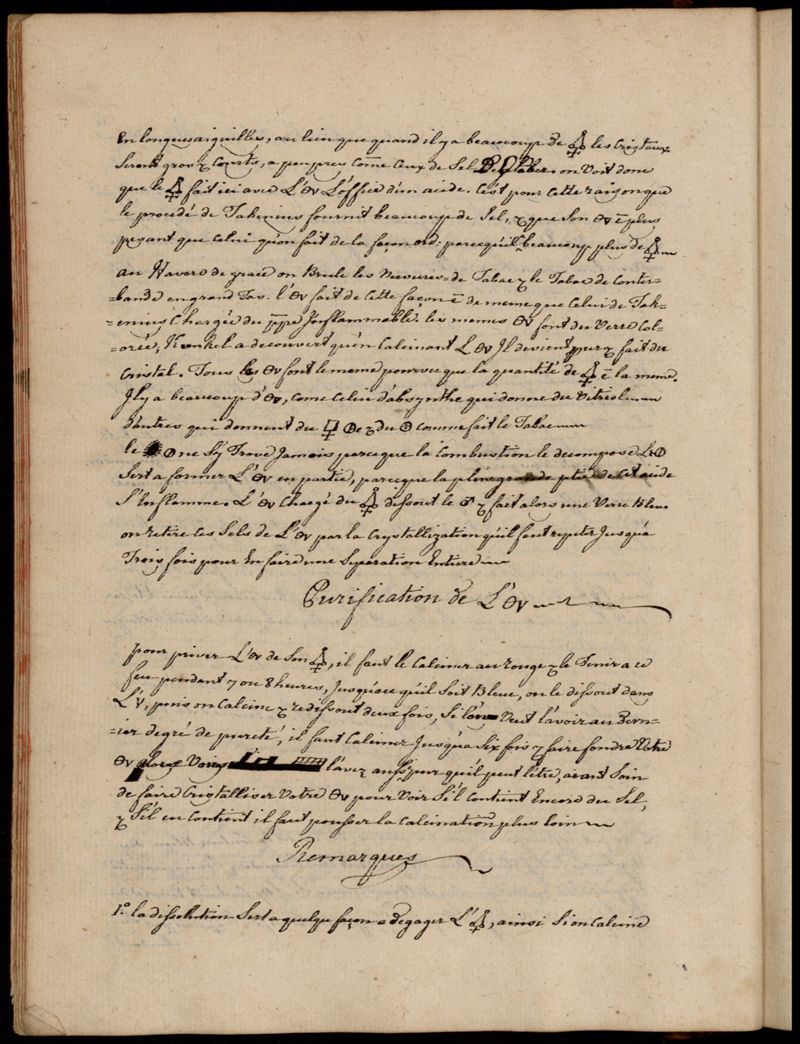 En longues aiguilles, au lieu que quand il y a beaucoup de 🜍 les cristaux
Seront gros & courts, a peu pres come Ceux de Sel De Glaber on Voit donc
que le 🜍 fait ici avec L'Θv L'office d'un acide. C'est pour Cette raison que
le procedé de Takenius fournit beaucoup de Sel, & que Son Θv ē plus
pesant que Celui qu'on fait de la façon ord: parcequ'il beaucoup plus de 🜍
au Havre de grace on Brule les de Tabac & le Tabac de Contre=
=bande en grand Tas. l'Θv fait de Cette façon ē de meme que Celui de Tak=
=enius Chargée du ppe Jnflammable. les memes Θv font du Verre Col=
=orée, Kunkel a decouvert qu'en Calcinant L'Θv Jl devient pur & fait du
Cristal. Tous les Θv font le meme pourvu que la quantité de 🜍 ē la meme.
Jl y a beaucoup d'Θv, come Celui d'absynthe qui donne du Vitriol
d'autres qui donnent du Θ & du comme fait le Tabac
le ne S'y Trove Jamais parceque la Combustion le decompose L'
Sert a former L'Θv en partie, parceque la plus grande ptie de Cet acide
S'Enflamme. L'Θv Chargé du 🜍 dissout le ♂ & fait alors une Verre Bleue
on retire Ces Sels de L'Θv par la Crystallization qu'il faut repeter Jusqu'a
Trois fois pour En faire une Separation Entiere
Purification de L'Θv
pour priver L'Θv de Son 🜍, il faut le Calciner au rouge & le Tenir a ce
feu pendant 7 ou 8 heures, Jusqu'a ce qu'il Soit Bleue, on le dissout dans
L'▽, puis on Calcine & redissout deux fois, Si l'on Veut l'avoir au Dern=
=ier degré de pureté, il faut Calciner Jusqu'a Six fois & faire fondre Votre
Θv alors Vous l'avez aussi pur qu'il peut l'etre, avant Soin
de faire Cristalliser Votre Θv pour Voir S'il Contient Encore du Sel,
& S'il en Contient il faut pousser la Calcination plus loin
Remarques
1.° la dissolution Sert a quelque façon a degager L' 🜍, ainsi Si on Calcine